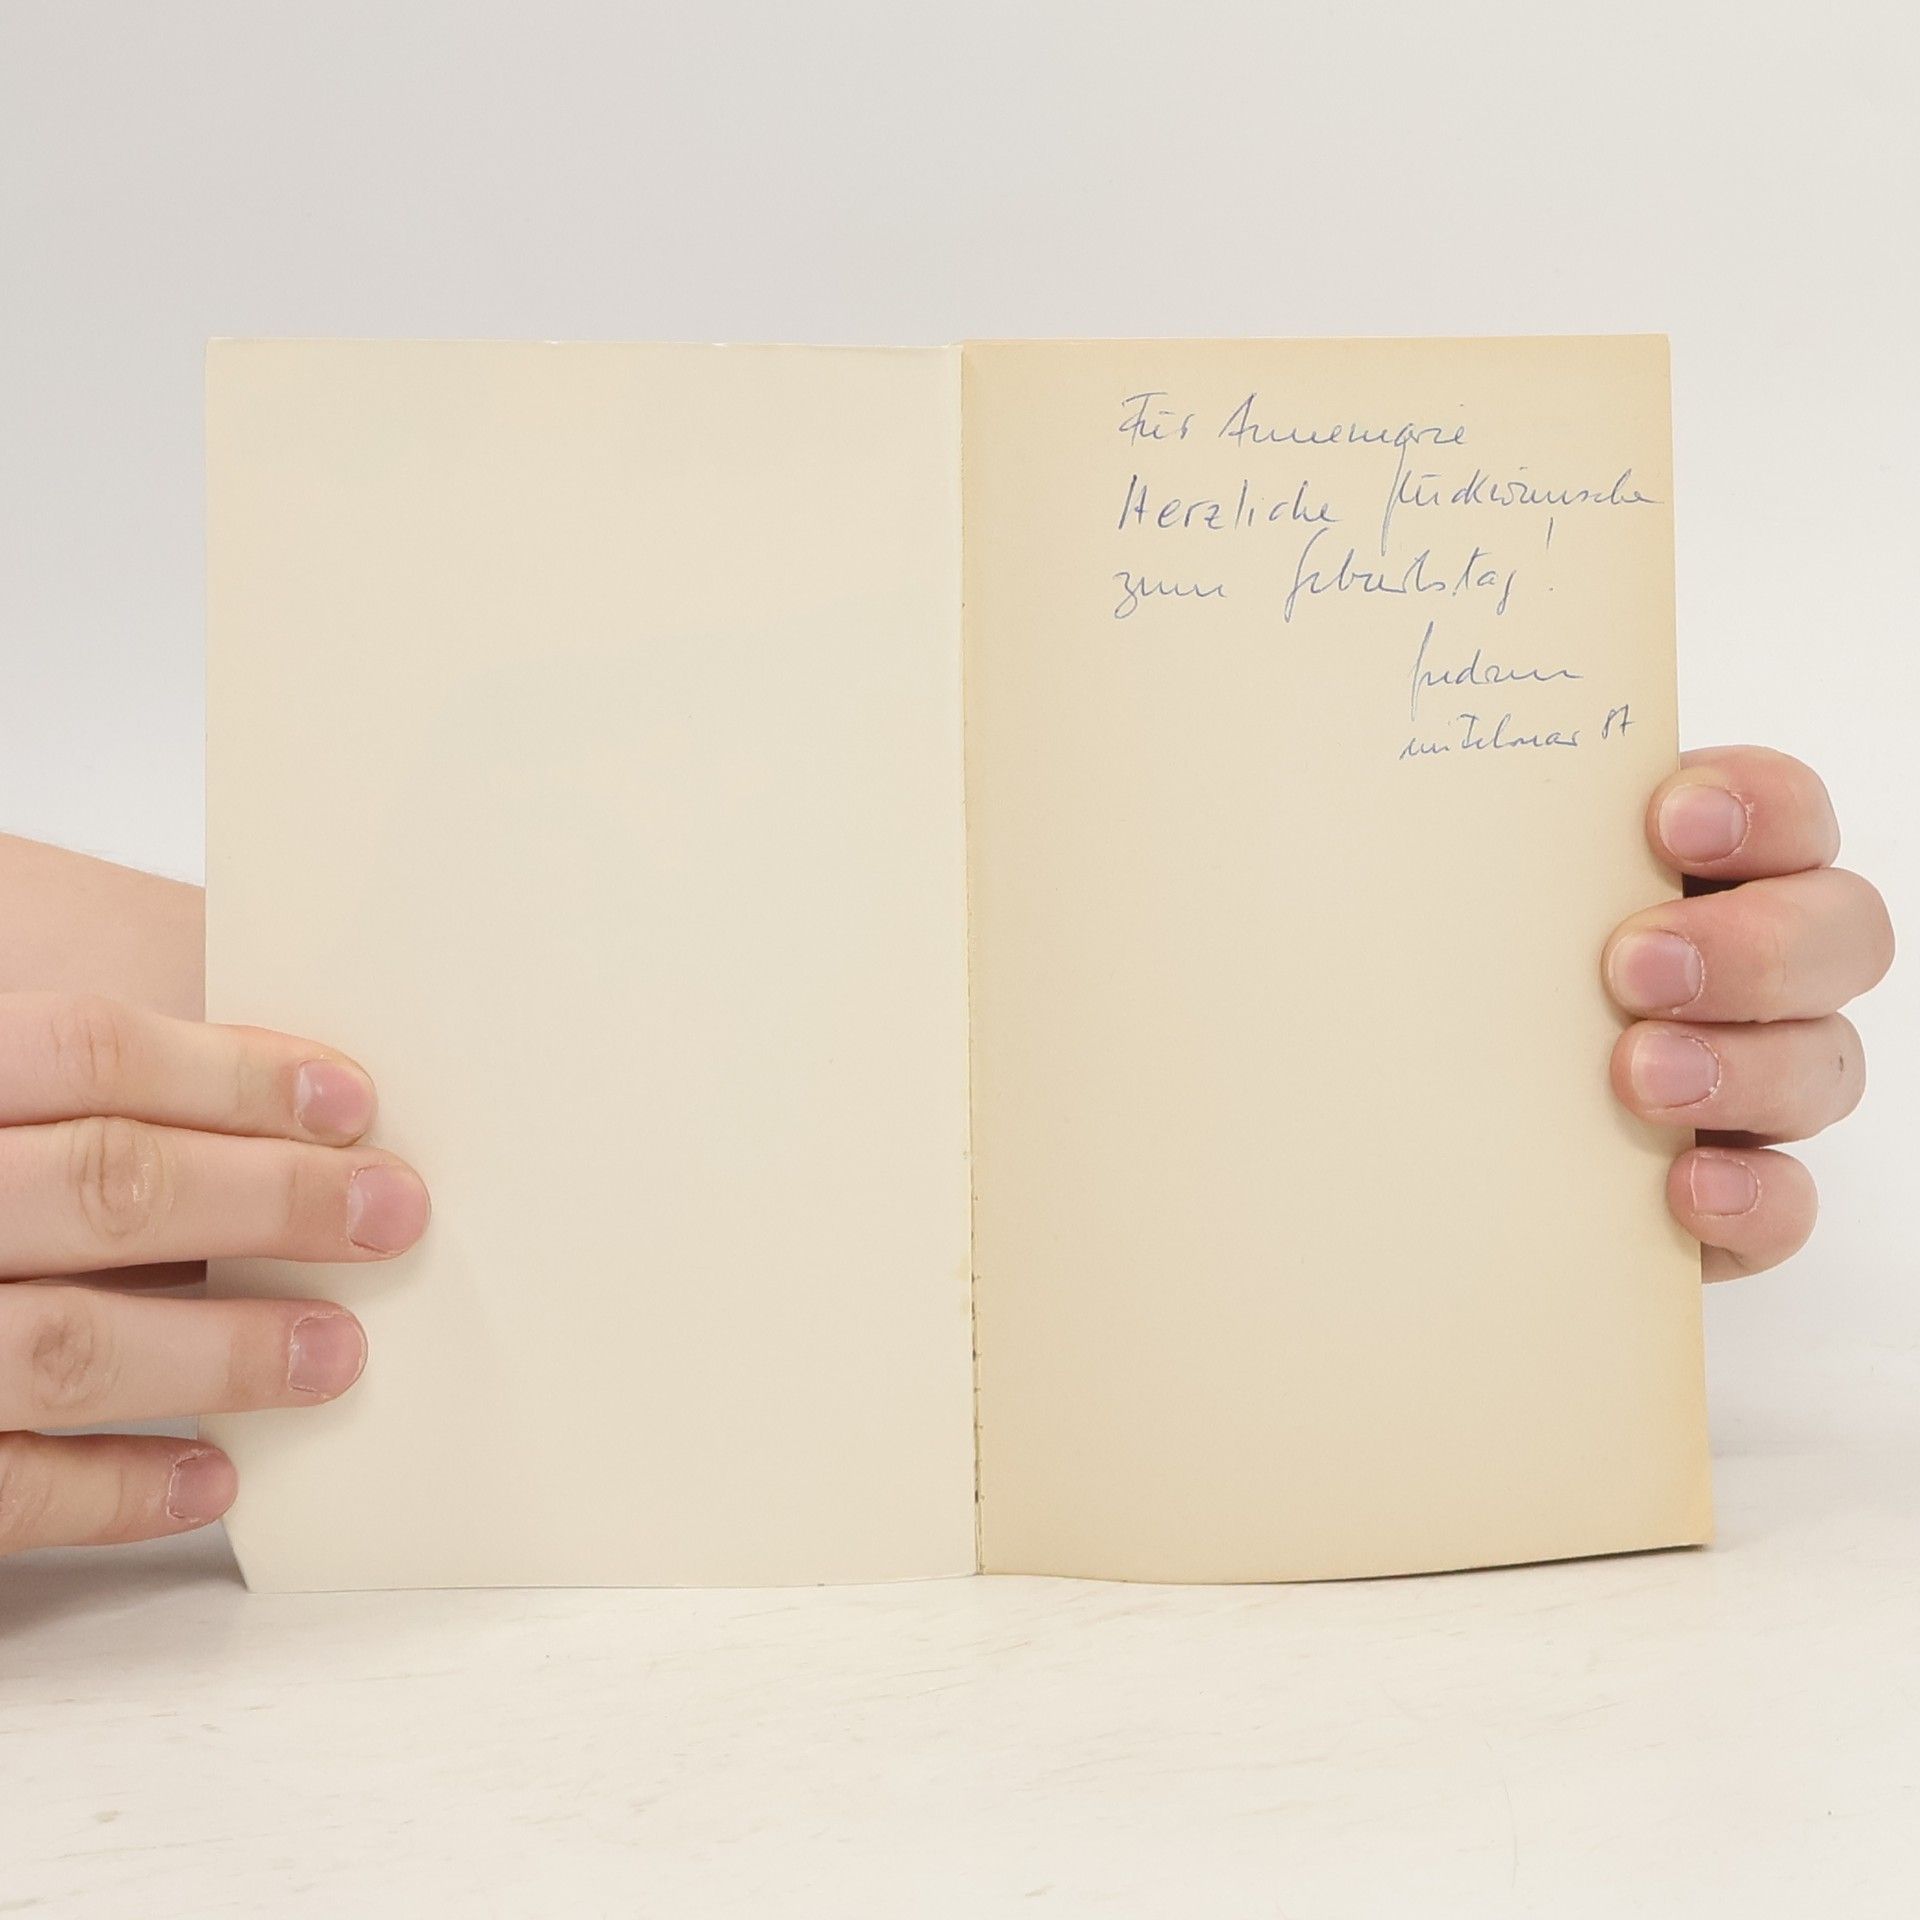 Für Annemarie
Herzliche Glückwünsche
zum Geburtstag!
Gudrun
im Februar 87